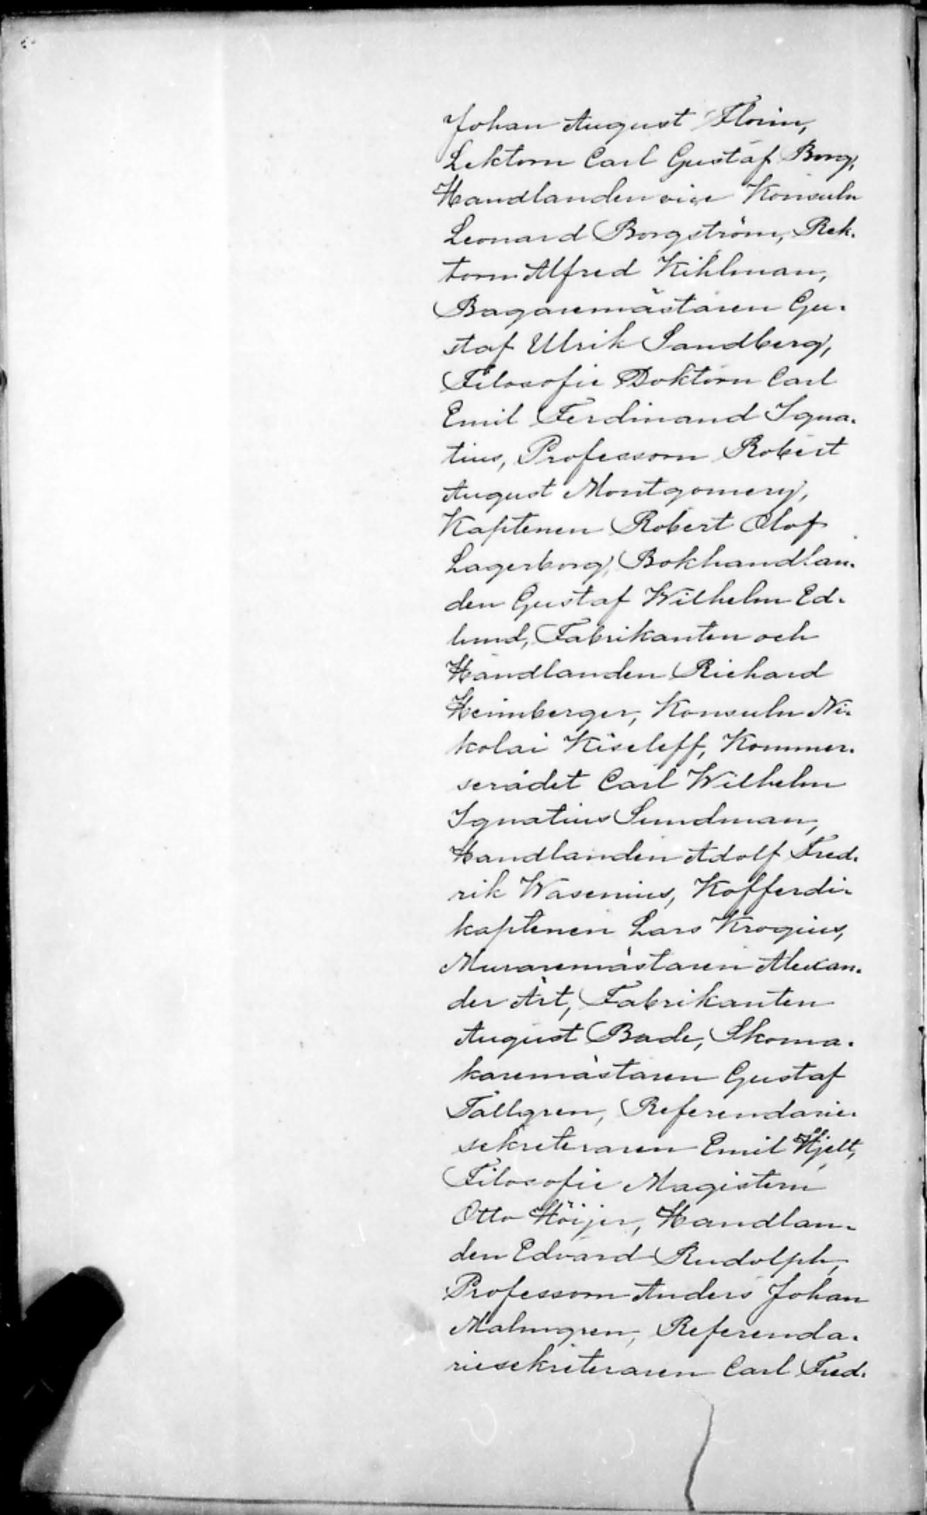 Johan August Florin,
Lektorn Carl Gustaf Borg,
Handlanden vice Konsuln
Leonard Borgström, Rek-
torn Alfred Kihlman,
Bagaremästaren Gu-
staf Ulrik Sandberg,
Filosofie Doktorn Carl
Emil Ferdinand Igna-
tius, Professorn Robert
August Montgomery,
Kaptenen Robert Olof
Lagerborg, Bokhandlan-
den Gustaf Wilhelm Ed-
lund, Fabrikanten och
Handlanden Richard
Heimberger, Konsuln Ni-
kolai Kiseleff, Kommer-
serådet Carl Wilhelm
Ignatius Sundman,
Handlanden Adolf Fred-
rik Wasenius, Kofferdi-
kaptenen Lars Krogius,
Muraremästaren Alexan-
der Ärt, Fabrikanten
August Bade, Skoma-
karemästaren Gustaf
Tallgren, Referendarie-
sekreteraren Emil Hjelt,
Filosofie Magistern
Otto Höijer, Handlan-
den Edvard Rudolph,
Professorn Anders Johan
Malmgren, Referenda-
riesekreteraren Carl Fred-